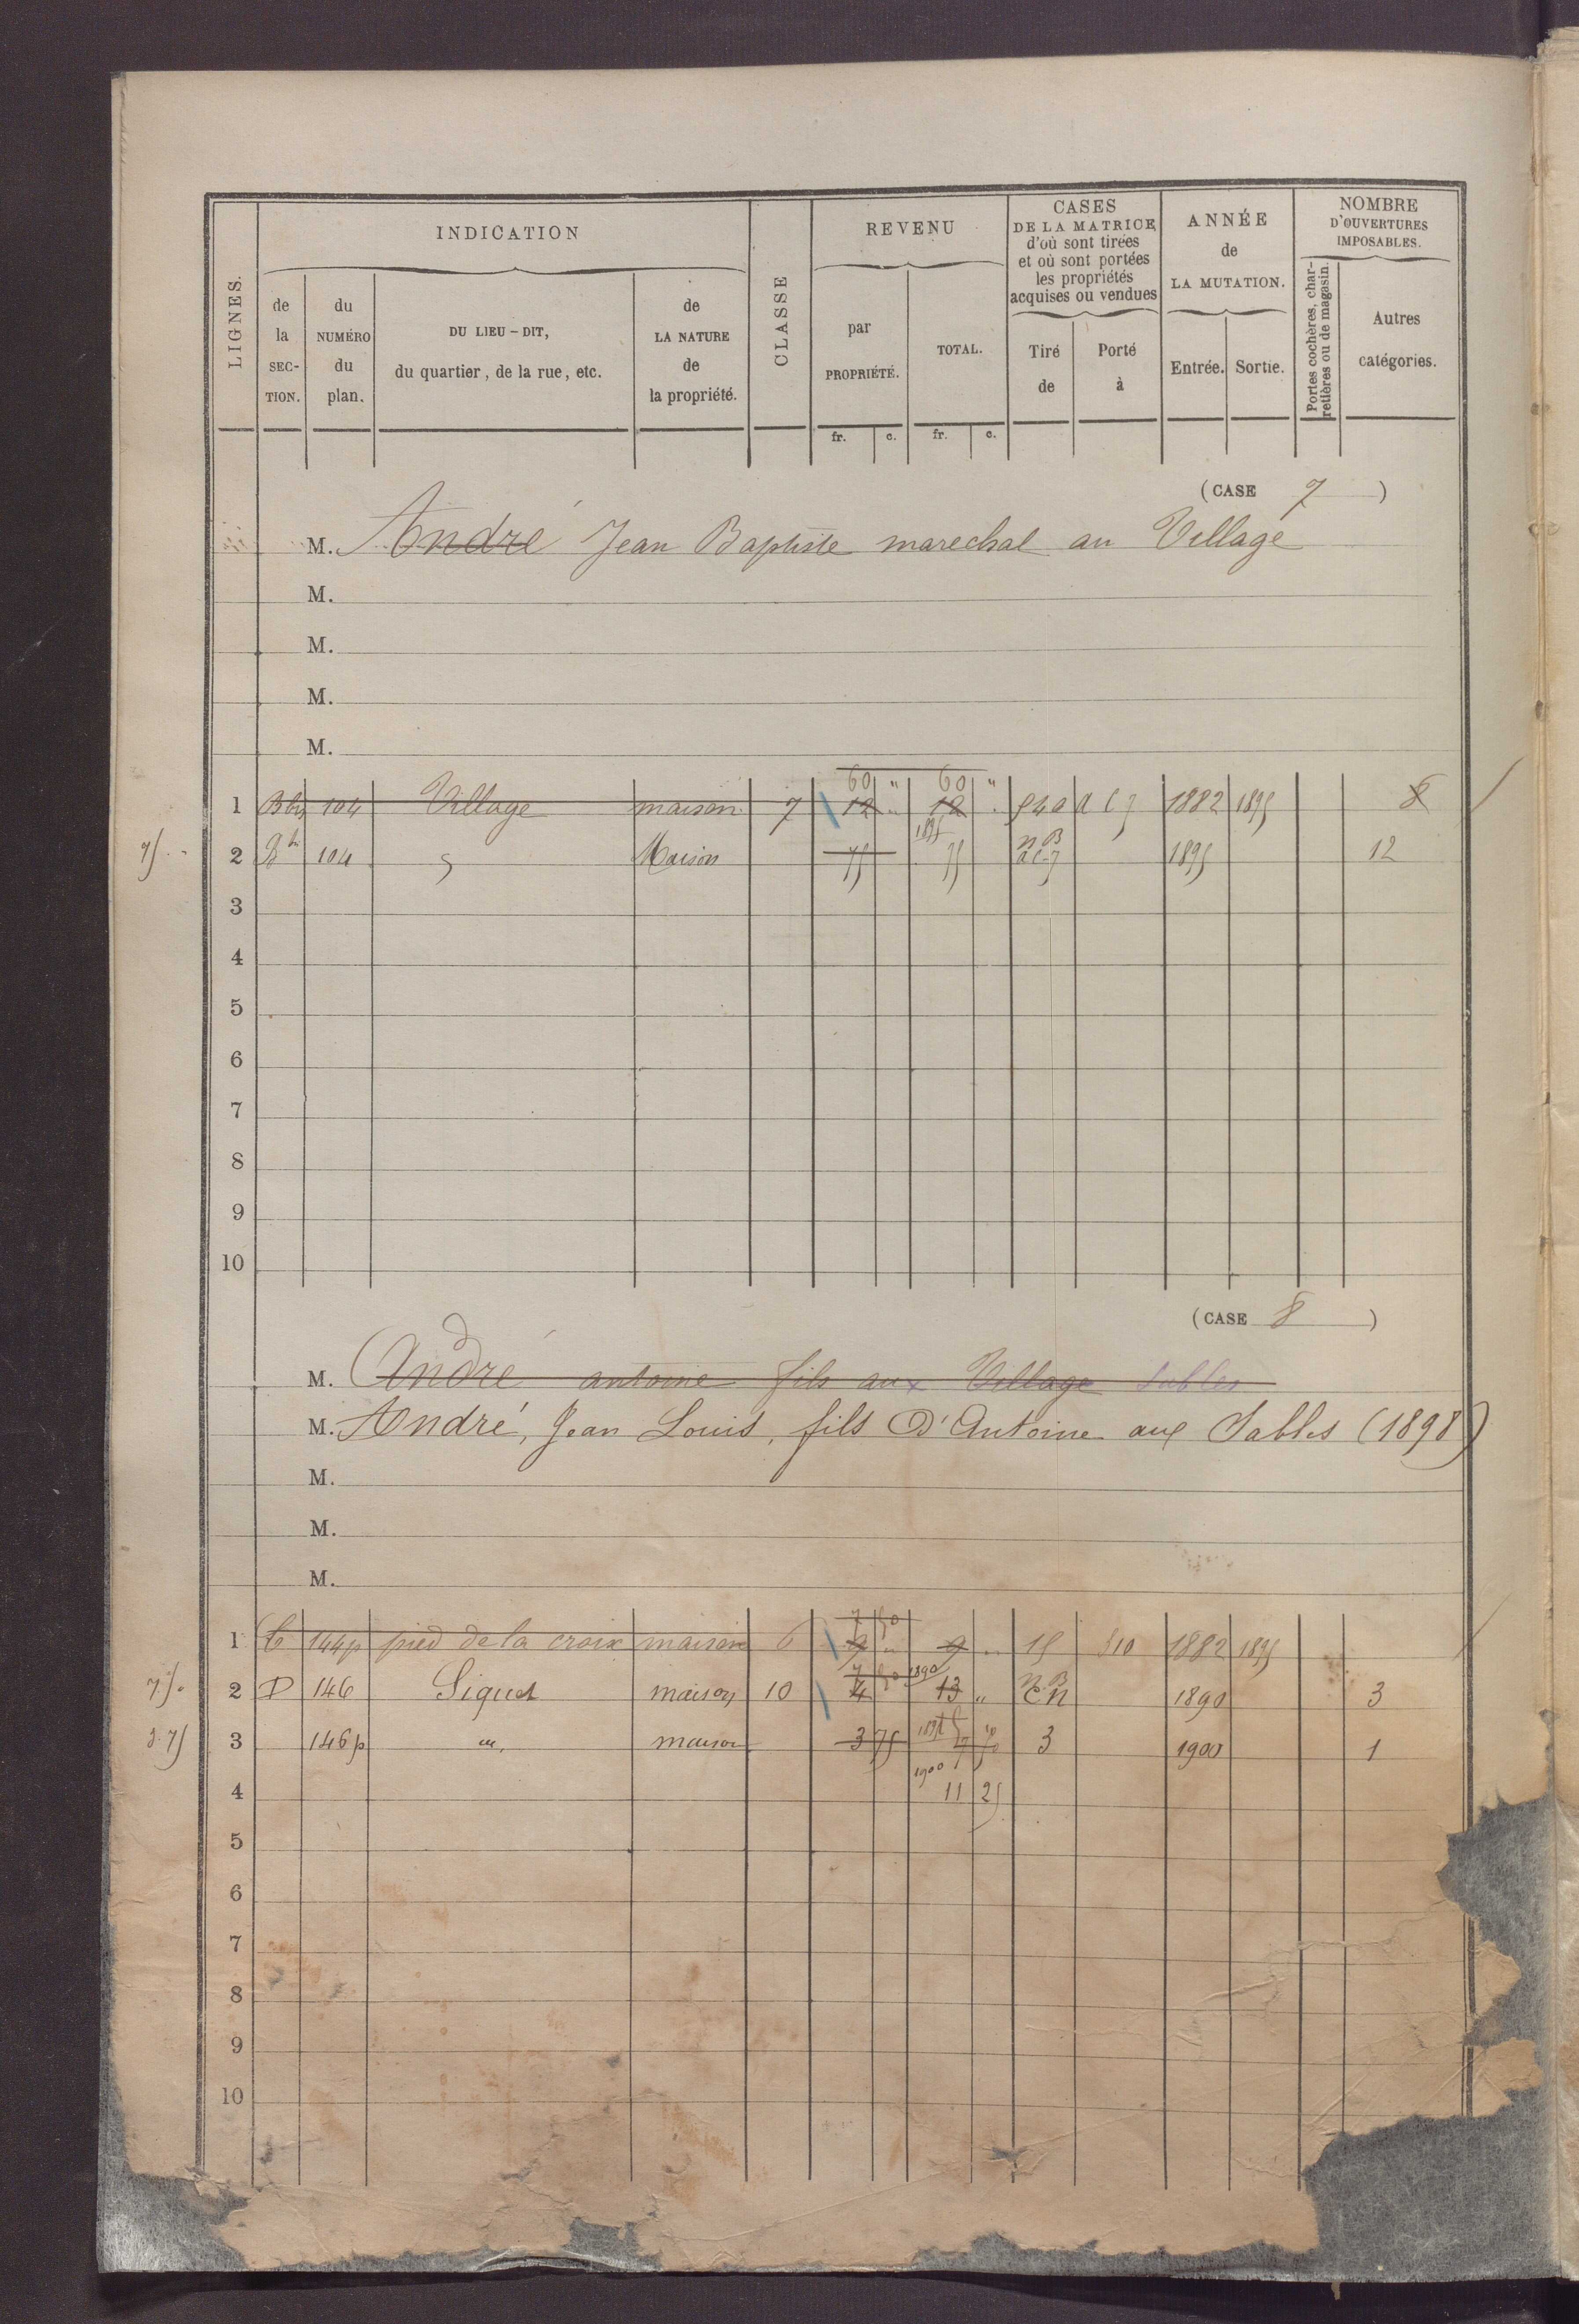 LIGNES.
INDICATION
de la SEC-TION.
du NUMÉRO du plan.
DU LIEU-DIT, du quartier, de la rue, etc.
de LA NATURE de la propriété.
CLASSE
REVENU
par PROPRIÉTÉ.
TOTAL.
fr. c. fr. c.
CASES DE LA MATRICE d'où sont tirées et où sont portées les propriétés acquises ou vendues
Tiré de
Porté à
ANNÉE de LA MUTATION.
Entrée. Sortie.
NOMBRE D'OUVERTURES IMPOSABLES.
Portes cochères, charretières ou de magasin.
Autres catégories.
(CASE 7)
M. André Jean Baptiste marechal au Village
M.
M.
M.
M.
60 " 60 "
1 104 Village maison 7 12 " 12 " 1882 1895 8
75 2 104 Maison 75 1895 75 1895 12
3
4
5
6
7
8
9
10
(CASE 8)
M. André antoine fils aux Village Sables
M. André, Jean Louis, fils D'Antoine aux Sables (1898)
M.
M.
M.
7 50
1 C 144p pied de la croix maison 6 9 " 9 " 15 810 1882 1895
7 50 1890
2 D 146 Signet maison 10 4 13 " 1890 3
3.75 3 146p maison 3 75 3 1900 1
1900
4 11 25
5
6
7
8
9
10